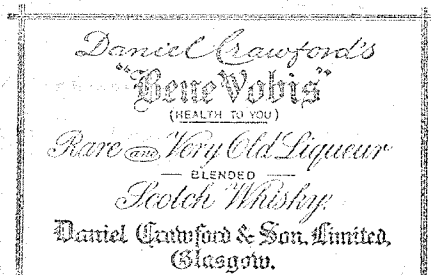 Daniel Crawford's
"Bene Vobis"
(HEALTH TO YOU)
Rare and Very Old Liqueur
BLENDED
Scotch Whisky.
Daniel Crawford & Son, Limited,
Glasgow.